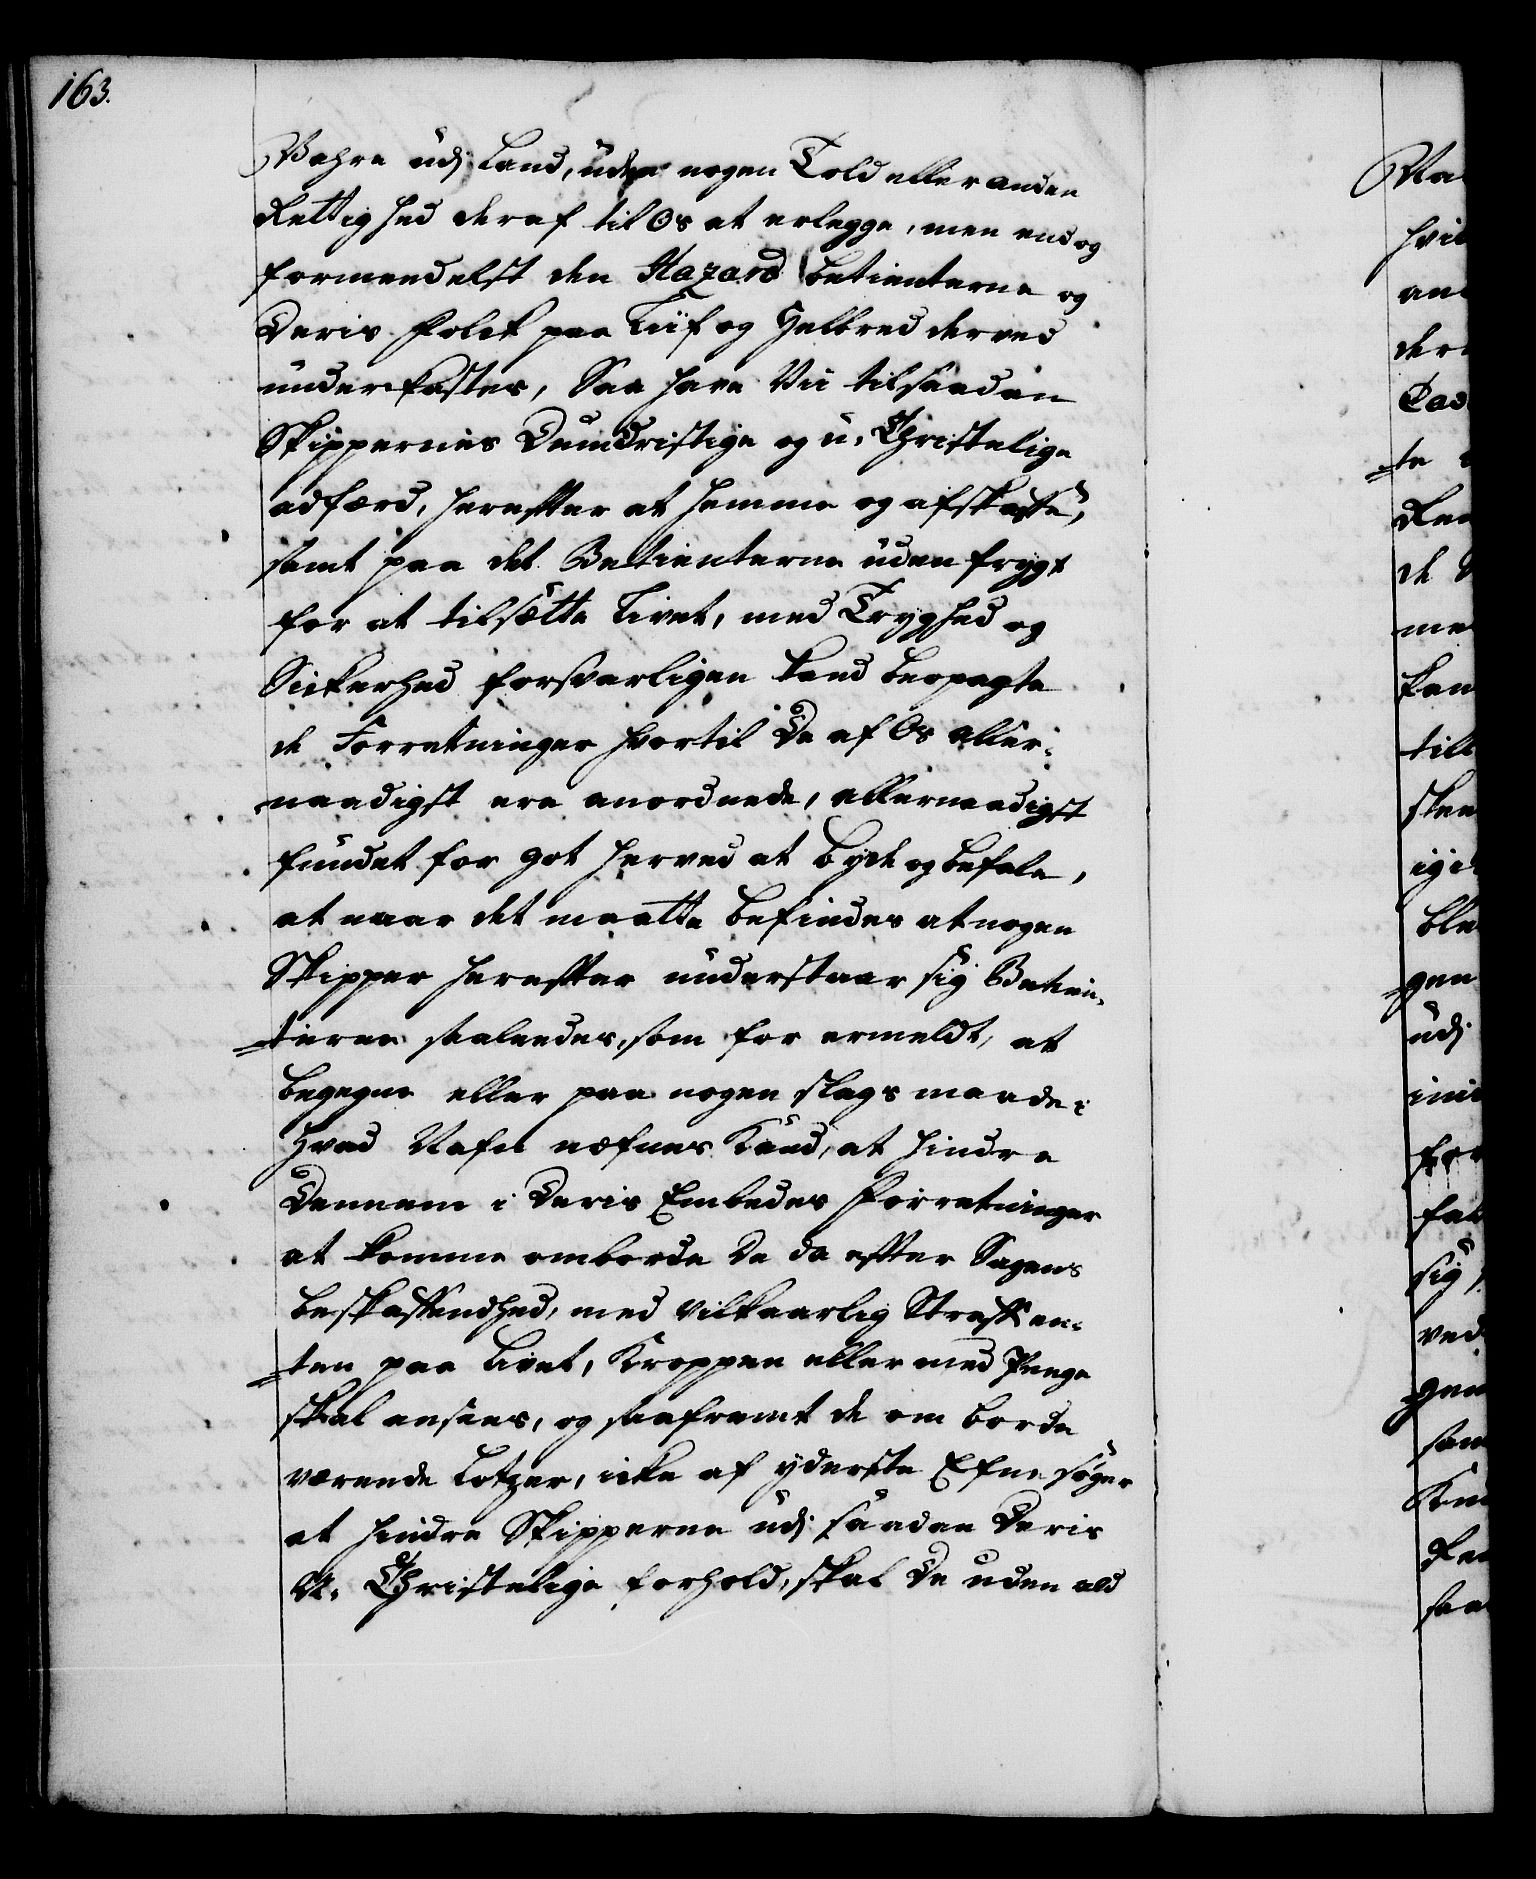 163.
Vahre udj Land, uden nogen Told eller anden
Rettighed deraf til Os at erlegge, men endog
formeedelst den Hazard Betienterne og
Deris Folck paa Liif og Helbred derved
underkastes, Saa have Vii til saadan
Skippernes Dumdristige og u-Christelige
adfærd, hereffter at hemme og afskaffe,
samt paa det Betienterne uden frygt
for at tilsætte Livet, med Tryghed og
Sickerhed forsvarligen kand beopagte
de Forretninger hvortil De af Os aller-
naadigst ere anordnede, allernaadigst
fundet for got herved at byde og befale,
at naar det maatte befindes at nogen
Skipper hereffter understaar sig Betien-
terne saaledes, som for ermeldt, at
begegne eller paa nogen slags maade
Hvad Nafn næfnes Kand, at hindre
Dennem i Deris Embedes Forretninger
at komme omborde De da effter Sagens
beskaffendhed, med vilkaarlig Straff en-
ten paa Livet, Kroppen eller med Penge
skal ansees, og saafremt de om borde
værende Lotzer, icke af yderste Efne søger
at hindre Skipperne udj saadan Deris
U-Christelige forhold, skal De uden ald
Va
hvil
an
der
Tad
te
Re
de
me
kan
till
skee
igie
ble
gen
udj
ini
for
fal
sig
ved
gen
sam
Kon
Re
saa